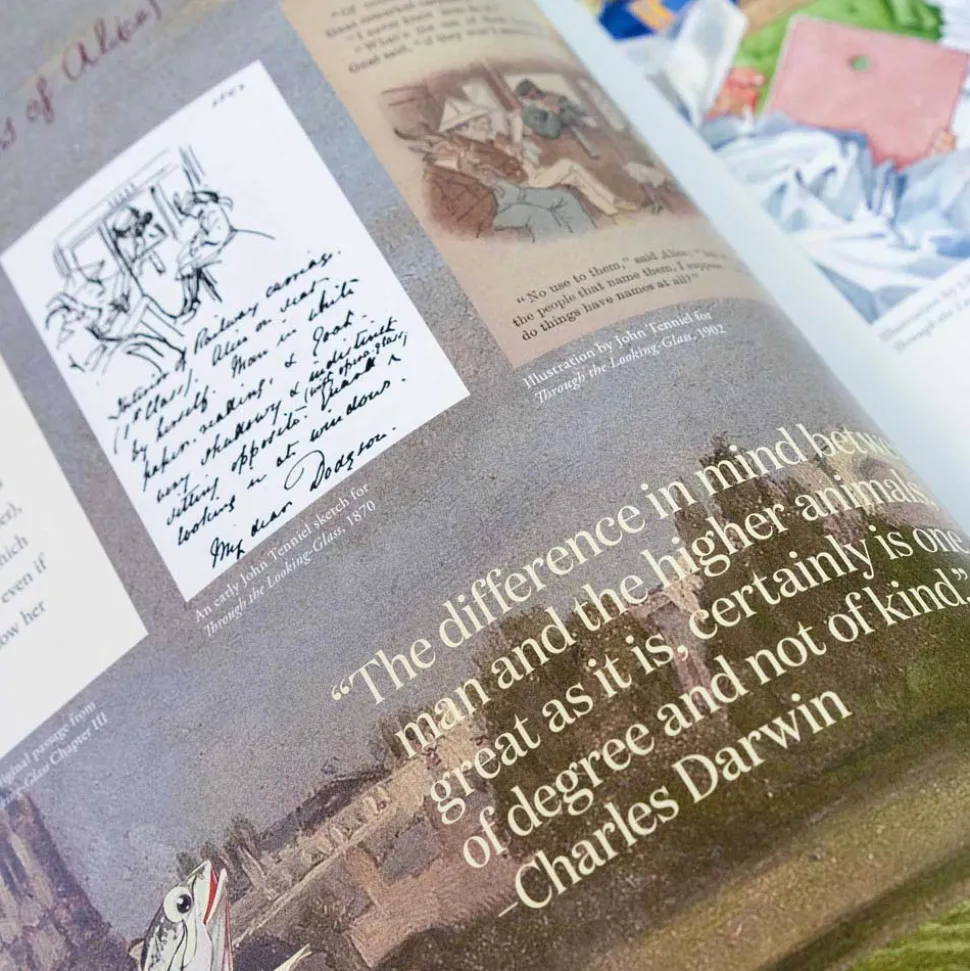 s of Alice
Interior of Railway carriage.
(1st Class). Alice on seat
by herself. Man in white
paper, reading, & Goat
very shadowy & indistinct
sitting opposite. Guard (with opera glass)
looking in at window.
My dear Dodgson.
An early John Tenniel sketch for
Through the Looking-Glass, 1870
Goat said, "if they
"No use to them," said Alice; "but
the people that name them, I suppose
do things have names at all?"
Illustration by John Tenniel for
Through the Looking-Glass, 1902
hich
even if
ow her
original passage from
Glass Chapter III
“The difference in mind betwe
man and the higher animals,
great as it is, certainly is one
of degree and not of kind.”
–Charles Darwin